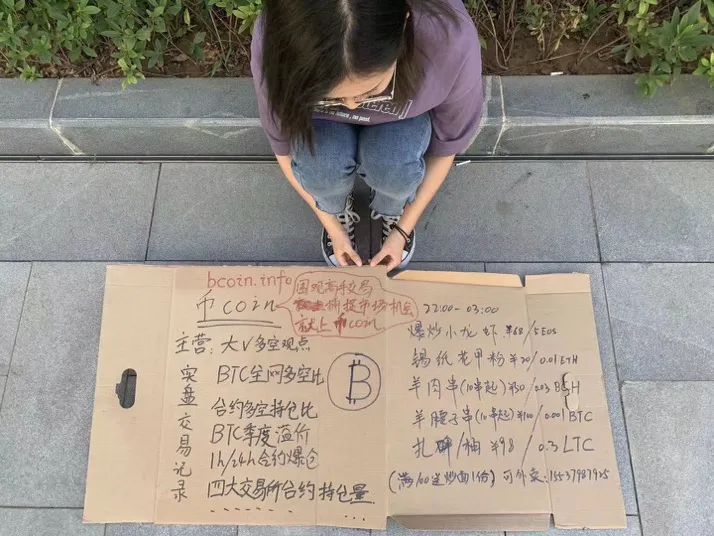 bcoin.info
币coin
围观高手交易
捕捉市场机会
就上币coin
主营：大V多空观点
BTC全网多空比
合约多空持仓比
BTC季度溢价
1h/24h合约爆仓
四大交易所合约持仓量
实盘交易记录
B
22:00-03:00
爆炒小龙虾 ¥68/5EOS
锡纸花甲粉 ¥20/0.01ETH
羊肉串(10串起)¥50/0.03BCH
羊腰子串(10串起)¥100/0.001BTC
扎啤/桶 ¥98/0.3LTC
(满100送炒面1份)可外卖:15537987925